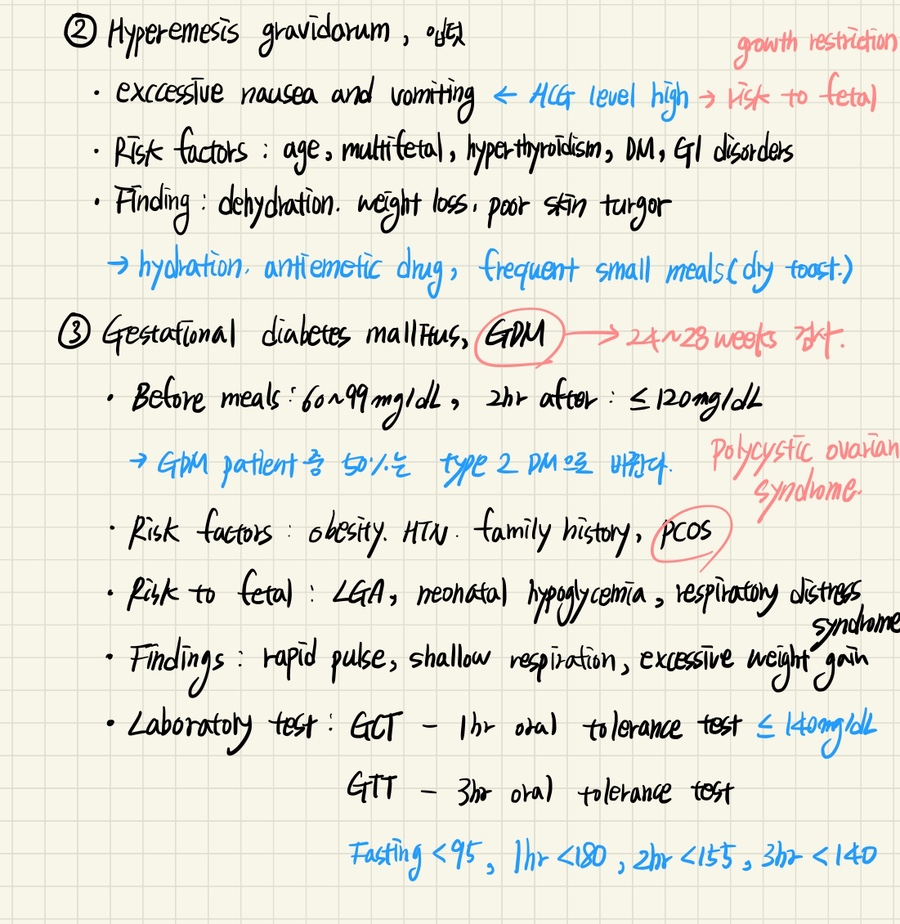 ② Hyperemesis gravidarum, 입덧
growth restriction
· exccessive nausea and vomiting ← HCG level high → risk to fetal
· Risk factors : age, multifetal, hyperthyroidism, DM, GI disorders
· Finding : dehydration. weight loss. poor skin turgor
→ hydration. antiemetic drug, frequent small meals(dry toast.)
③ Gestational diabetes mallitus, GDM → 24~28 weeks 검사.
· Before meals : 60~99 mg/dL, 2hr after : ≤ 120mg/dL
→ GDM patient 중 50%는 type 2 DM으로 바뀐다.
Polycystic ovarian
syndrome.
· Risk factors : obesity. HTN. family history, PCOS
· Risk to fetal : LGA, neonatal hypoglycemia, respiratory distress
syndrome
· Findings : rapid pulse, shallow respiration, excessive weight gain
· Laboratory test : GCT - 1hr oral tolerance test ≤ 140mg/dL
GTT - 3hr oral tolerance test
Fasting <95, 1hr <180, 2hr <155, 3hr <140